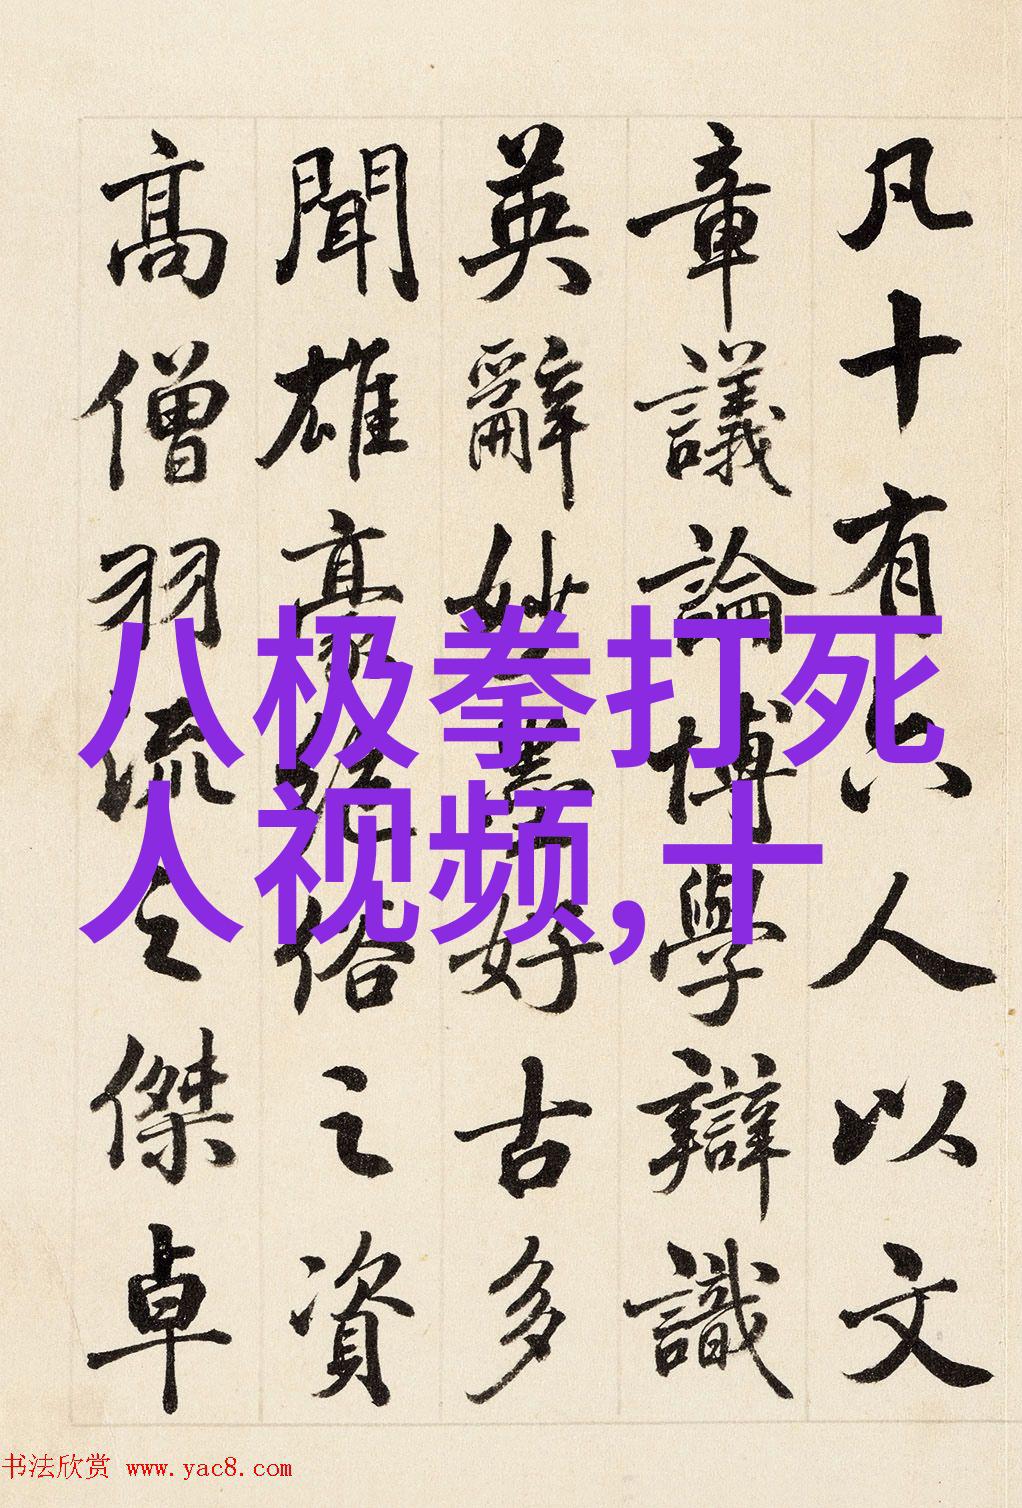 凡十有六人以文
章議論博學辯識
英辭妙墨好古多
聞雄豪絕俗之資
高僧羽流之傑卓
八极拳打死
人视频,十
书法欣赏 www.yac8.com